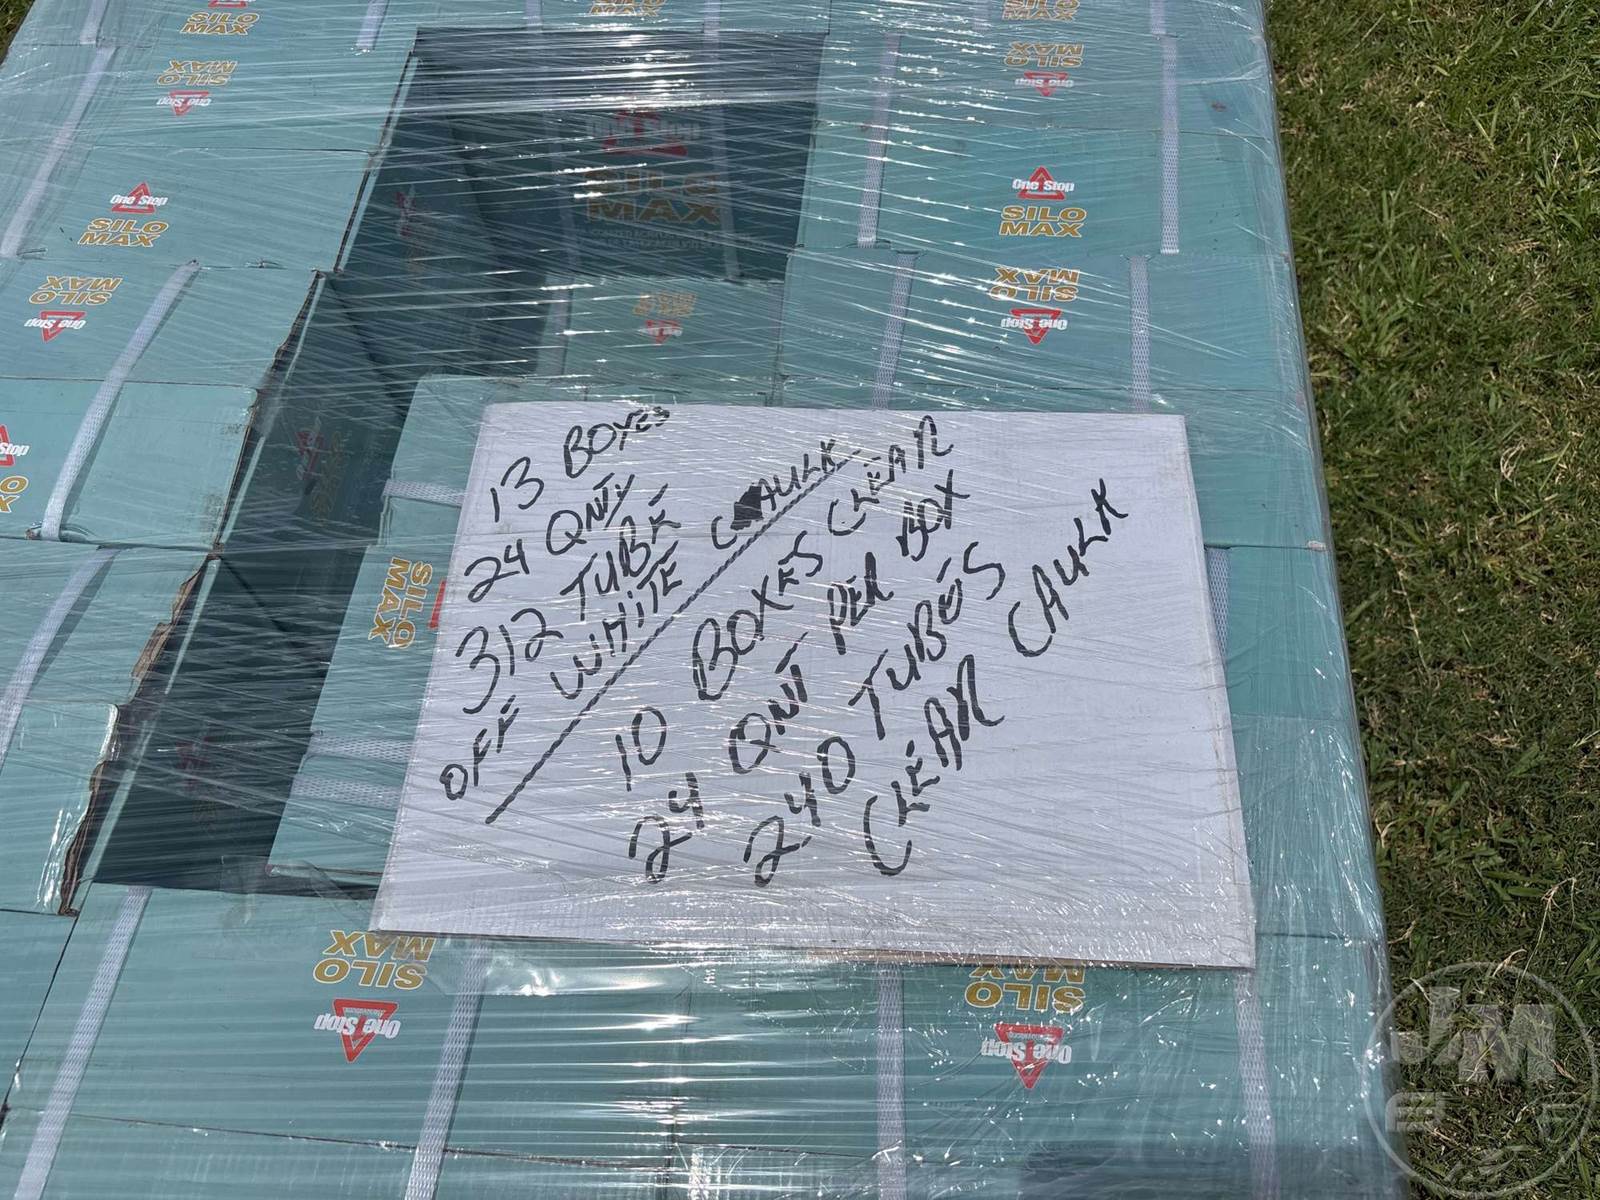 SILO
MAX
SILO
MAX
One Stop
One Stop
SILO
MAX
SILO
MAX
One Stop
One Stop
SILO
MAX
SILO
MAX
One Stop
SILO
MAX
One Stop
SILO
MAX
One Stop
SILO
MAX
13 BOXES
24 QNTY
312 TUBE
OFF WHITE CAULK
10 BOXES CLEAR
24 QNT PER BOX
240 TUBES
CLEAR CAULK
SILO
MAX
One Stop
SILO
MAX
One Stop
JM